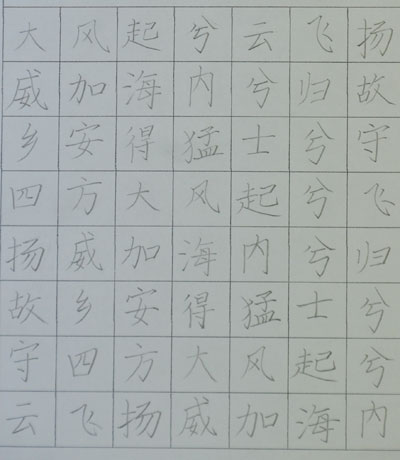 大风起兮云飞扬
威加海内兮归故
乡安得猛士兮守
四方大风起兮飞
扬威加海内兮归
故乡安得猛士兮
守四方大风起兮
云飞扬威加海内